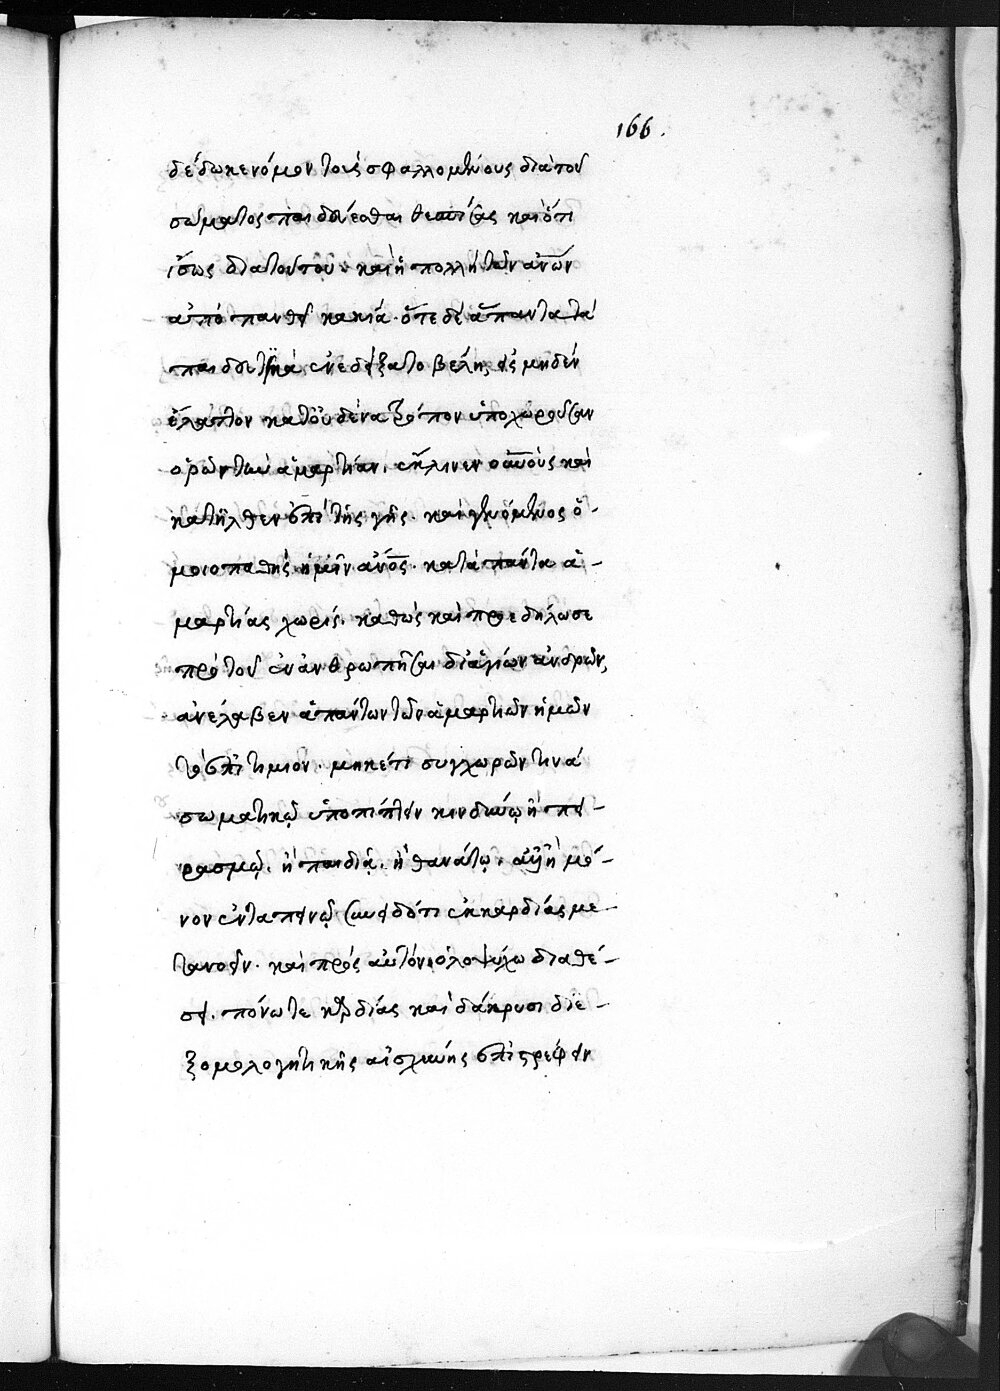 166.
δέδωκε νόμον τοὺς σφαλλομένους διὰ τοῦ
σώματος παιδεύεσθαι θεσπίσας καὶ ὅτι
ἴσως διὰ τούτου καὶ ἡ πολλὴ τῶν ἀνῶν
κακία. ὅτε δὲ ἅπαντα τὰ
παιδευτικὰ ἐνεδείξατο βέλη, εἰς μηδὲν
ἔλαττον κατ' οὐδένα τρόπον ὑποχωροῦσαν
ὁρῶν τὴν ἁμαρτίαν, ἔκλινεν οὐνοὺς καὶ
κατῆλθεν ἐπὶ τῆς γῆς. καὶ γενόμενος ὁ-
μοιοπαθὴς ἡμῖν ἄνος. κατὰ πάντα ἁ-
μαρτίας χωρίς. καθὼς καὶ προεδήλωσε
πρὸ τοῦ ἐνανθρωπῆσαι δι' ἁγίων ἀνδρῶν,
ἀνέλαβεν ἁπάντων τῶν ἁμαρτιῶν ἡμῶν
τὸ ἐπιτίμιον. μηκέτι συγχωρῶν τινὰ
σωματικῷ ὑποπίπτειν κινδύνῳ ἢ πει-
ρασμῷ. ἢ παιδίᾳ. ἢ θανάτῳ. ἀλλ' ἢ μό-
νον ἐν ταπεινῷ συνειδότι ἐκ καρδίας με-
τανοεῖν. καὶ πρὸς αὐτὸν ὁλοψύχω διαθέ-
σει. πόνω τε καρδίας καὶ δάκρυσι δι' ἐ-
ξομολογητικῆς αἰσχύνης ἐπιστρέφειν